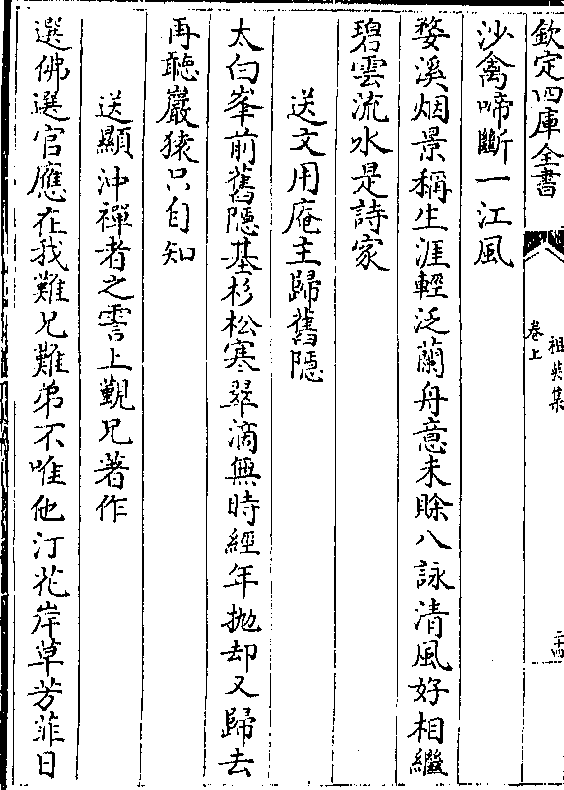 欽定四庫全書
祖英集
卷上
二十四
沙禽啼斷一江風
婺溪烟景稱生涯輕泛蘭舟意未賖八詠清風好相繼
碧雲流水是詩家
送文用庵主歸舊隱
太白峯前舊隱基杉松寒翠滴無時經年拋却又歸去
再聽巖猿只自知
送顯沖禪者之霅上覲兄著作
選佛選官應在我難兄難弟不唯他汀花岸草芳菲日